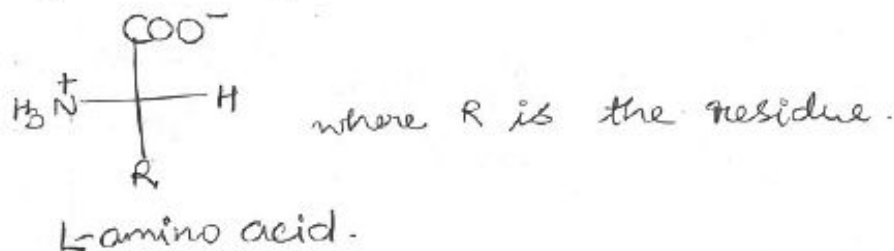 COO⁻
H₃N⁺ H where R is the residue.
R
L-amino acid.